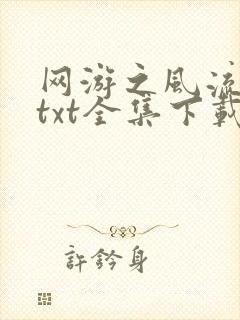 网游之风流
txt全集下载
許鈐身